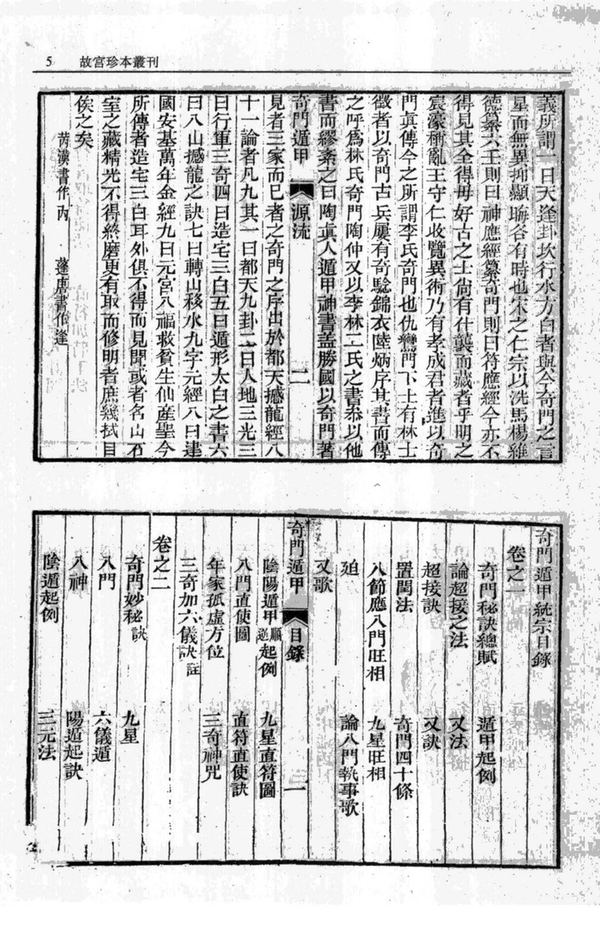 5 故宮珍本叢刊
義所謂一曰天逢卦坎行水方白者與今奇門之言
星而無異抑顯晦各有時也宋之仁宗以洗馬楊維
德纂六壬則曰神應經纂奇門則曰符應經今亦不
得見其全得毋好古之士尚有什襲而藏者乎明之
宸濠稱亂王守仁收覽異術乃有李成君者進以奇
門真傳今之所謂李氏奇門也仇鸞門下上有林士
徵者以奇門古兵屢有奇驗錦衣陸炳序其書而傳
之呼爲林氏奇門陶仲文以李林二氏之書恭以他
書而繆紊之曰陶眞人遁甲神書蓋勝國以奇門著
奇門遁甲 源流 二
見者三家而已者之奇門之序出於都天撼龍經八
十一論者凡九其一曰都天九卦二曰人地三光三
曰行軍三奇四曰造宅三白五曰遁形太白之書六
曰八山撼龍之訣七曰轉山移水九字元經八曰建
國安基萬年金經九曰元宮八福救貧生仙產聖今
所傳者造宅三白耳外俱不得而見聞或者名山石
室之藏精光不得終磨更有取而修明者庶幾拭目
俟之矣
芮漢書作內 蓬唐書作逢
奇門遁甲統宗目錄
卷之一
奇門秘訣總賦 遁甲起例
論超接之法 又法
超接訣 又訣
置閏法 奇門四十條
八節應八門旺相 九星旺相
廹 論八門執事歌
又歌
奇門遁甲 目錄 一
陰陽遁甲順逆起例 九星直符圖
八門直使圖 直符直使訣
年家孤虛方位 三奇神咒
三奇加六儀訣註
卷之二
奇門妙秘訣 九星
八門 六儀遁
八神 陽遁起訣
陰遁起例 三元法